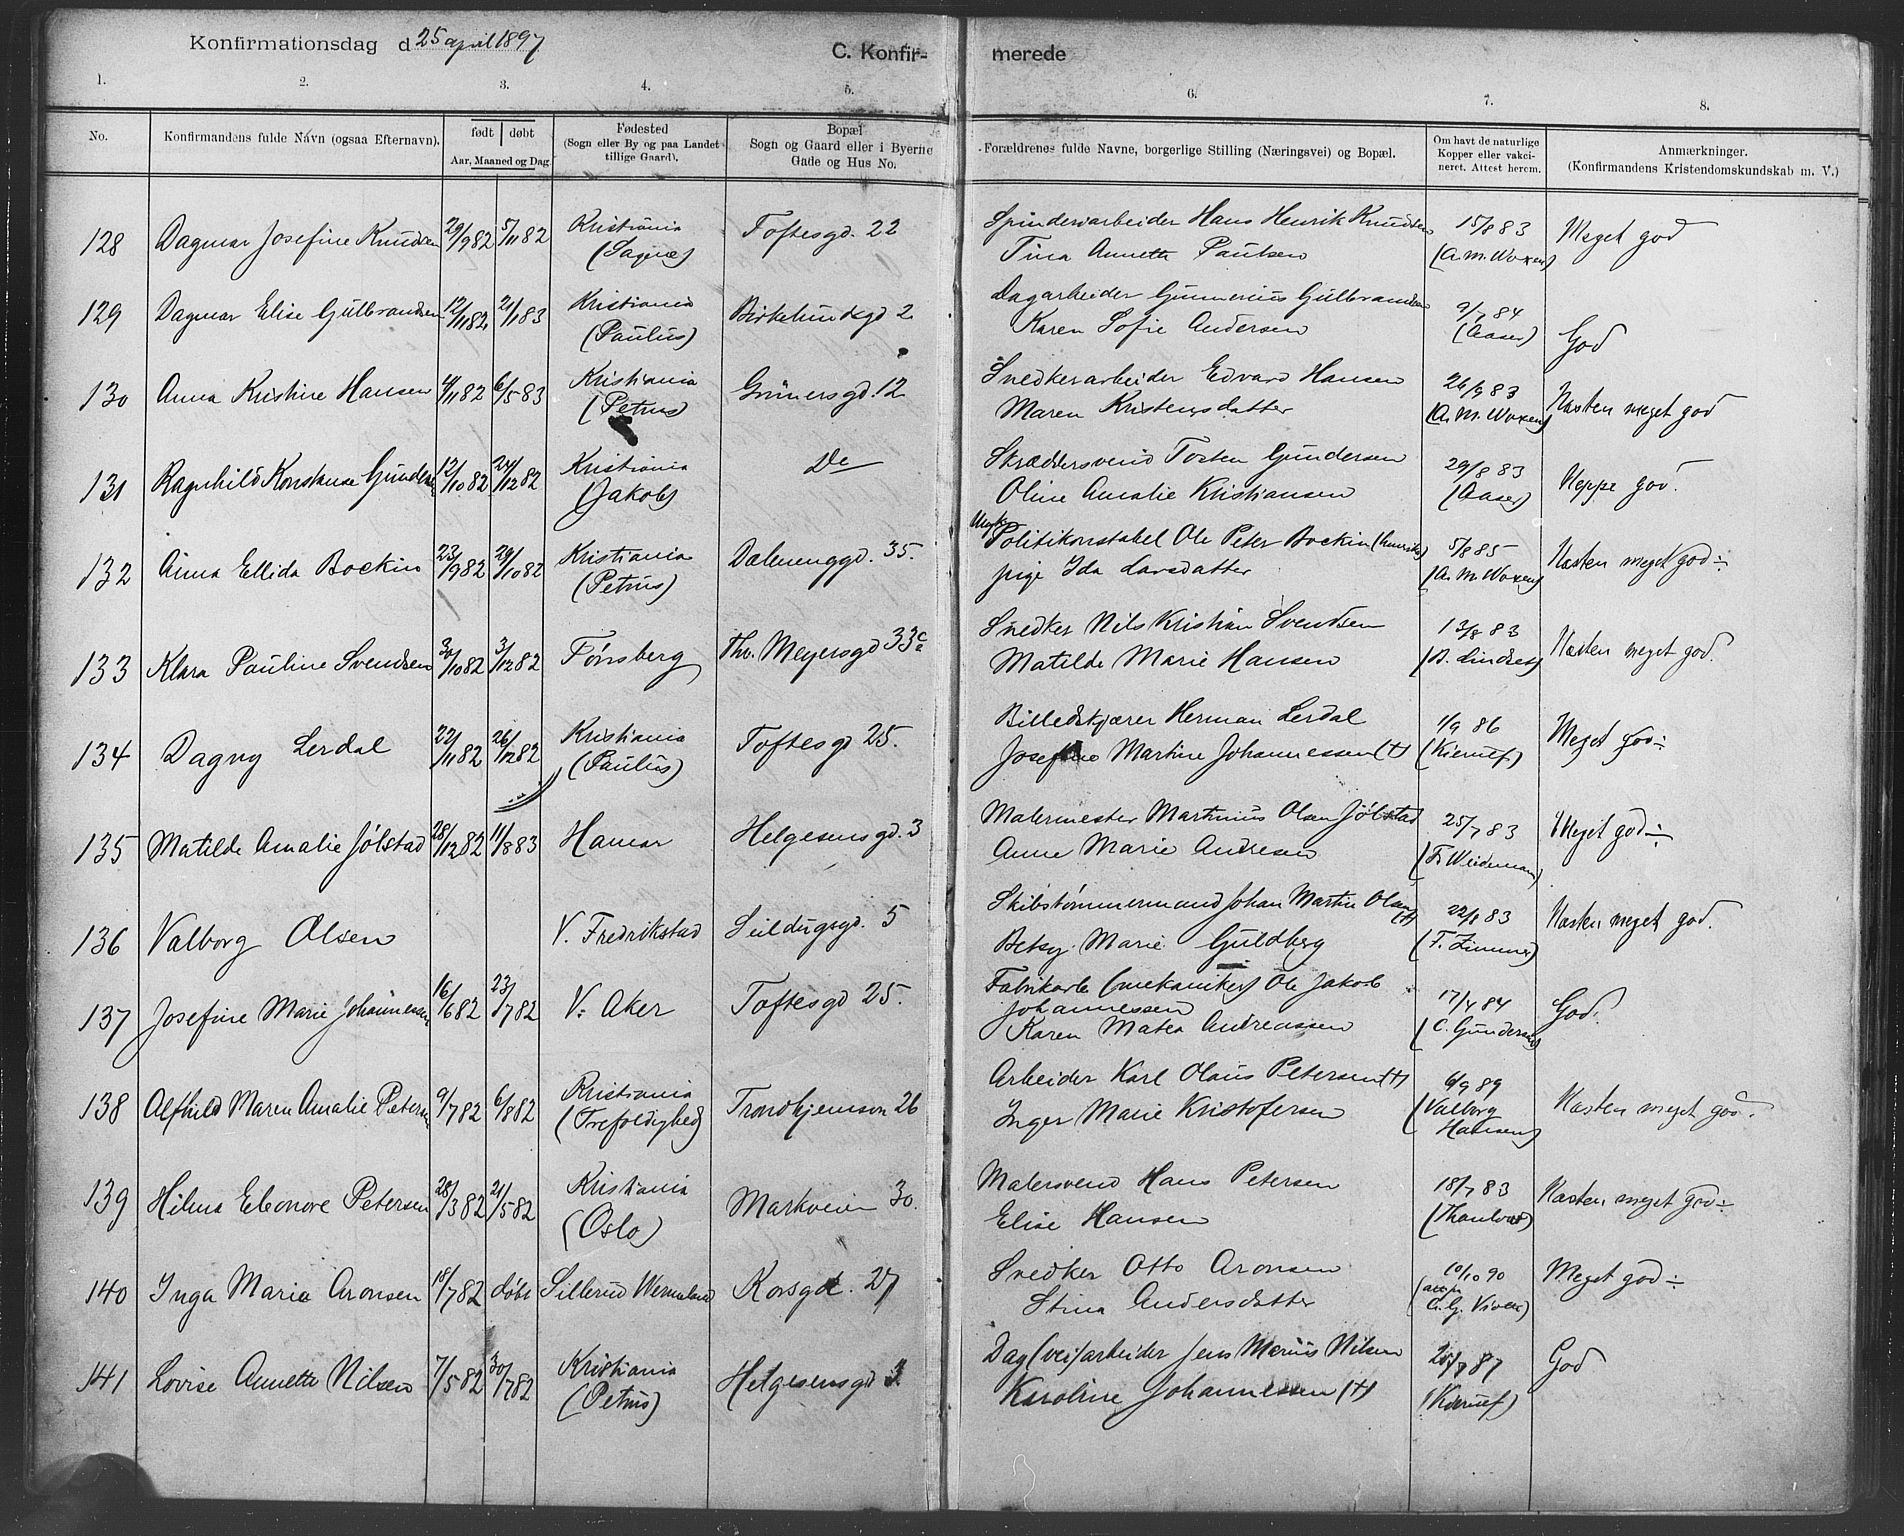 Konfirmationsdag d 25 april 1897
C. Konfir- merede
1. 2. 3. 4. 5. 6. 7. 8.
No.
Konfirmandens fulde Návn (ogsaa Efternavn).
født døbt
Aar, Maaned og Dag
Fødested
(Sogn eller By og paa Landet
tillige Gaard).
Bopæl
Sogn og Gaard eller i Byerne
Gade og Hus No.
Forældrenes fulde Navne, borgerlige Stilling (Næringsvei) og Bopæl.
Om havt de naturlige
Kopper eller vakci-
neret. Attest herom.
Anmærkninger.
(Konfirmandens Kristendomskundskab m. V.)
128 Dagmar Josefine Knudsen 29/9 82 5/11 82 Kristiania (Sagne) Toftesgd. 22 Spinderiarbeider Hans Henrik Knudsen 15/8 83 Meget god
Tina Annette Paulsen (A. M. Woxen)
129 Dagmar Elise Gulbrandsen 12/11 82 21/1 83 Kristiania (Paulus) Birkelundsgd 2 Dagarbeider Gunnerius Gulbrandsen 9/7 84 God
Karen Sofie Andersen (Aaser)
130 Anna Kristine Hansen 4/11 82 6/5 83 Kristiania (Petrus) Grünersgd. 12 Snedkerarbeider Edvard Hansen 26/9 83 Næsten meget god
Maren Kristensdatter (A. M. Woxen)
131 Ragnhild Konstanse Gundersen 12/10 82 24/12 82 Kristiania (Jakob) Do Skræddersvend Tosten Gundersen 29/8 83 Neppe god.
Oline Amalie Kristiansen (Aaser)
132 Anna Ellida Bockin 23/9 82 29/10 82 Kristiania (Petrus) Dælenenggd. 35. Ungk. Politikonstabel Ole Peter Bockin 5/8 85 Næsten meget god ÷
pige Ida Larsdatter (A. M. Woxen)
133 Klara Pauline Svendsen 30/10 82 3/12 82 Tønsberg Thv. Meyersgd 33c Snedker Nils Kristian Svendsen 13/8 83 Næsten meget god.
Matilde Marie Hansen
134 Dagny Lerdal 22/11 82 26/12 82 Kristiania (Paulus) Toftesgd 25. Billedskjærer Herman Lerdal 1/9 86 Meget god ÷
Josefine Martine Johannessen (†) (Kierulf)
135 Matilde Amalie Jølstad 28/12 82 11/8 83 Hamar Helgesensgd. 3 Malermester Martinius Olsen Jølstad 25/7 83 Meget god ÷
Anne Marie Andresen (Fr. Weideman)
136 Valborg Olsen V. Fredrikstad Seildugsgd. 5 Skibstømmermand Johan Martin Olsen (†) 22/8 83 Næsten meget god.
Betsy Marie Guldberg (F. Zimmer)
137 Josefine Marie Johannessen 16/6 82 23/7 82 V. Aker Toftesgd 25. Fabrikarb (mekaniker) Ole Jakob 17/4 84 God.
Johannessen
Karen Matea Andreassen (C. Gundersen)
138 Alfhild Maren Amalie Petersen 9/7 82 6/8 82 Kristiania (Trefoldighed) Trondhjemsvn 26 Arbeider Karl Olaus Petersen (†) 6/9 89 Næsten meget god.
Inger Marie Kristofersen (Valborg
Hansen)
139 Hilma Eleonore Petersen 28/3 82 21/5 82 Kristiania (Oslo) Markveien 30. Malersvend Hans Petersen 18/7 83 Næsten meget god ÷
Elise Hansen (Thaulow)
140 Inga Maria Aronsen 18/7 82 døbt Sillerud Wermland Korsgd. 27 Snedker Otto Aronsen 10/10 90 Meget god ÷
Stina Andersdatter
141 Lovise Annette Nilsen 7/5 82 30/7 82 Kristiania (Petrus) Helgesensgd 3. Dag(vei)arbeider Jens Marius Nilsen God
Karoline Johannessen (†) (Kierulf)